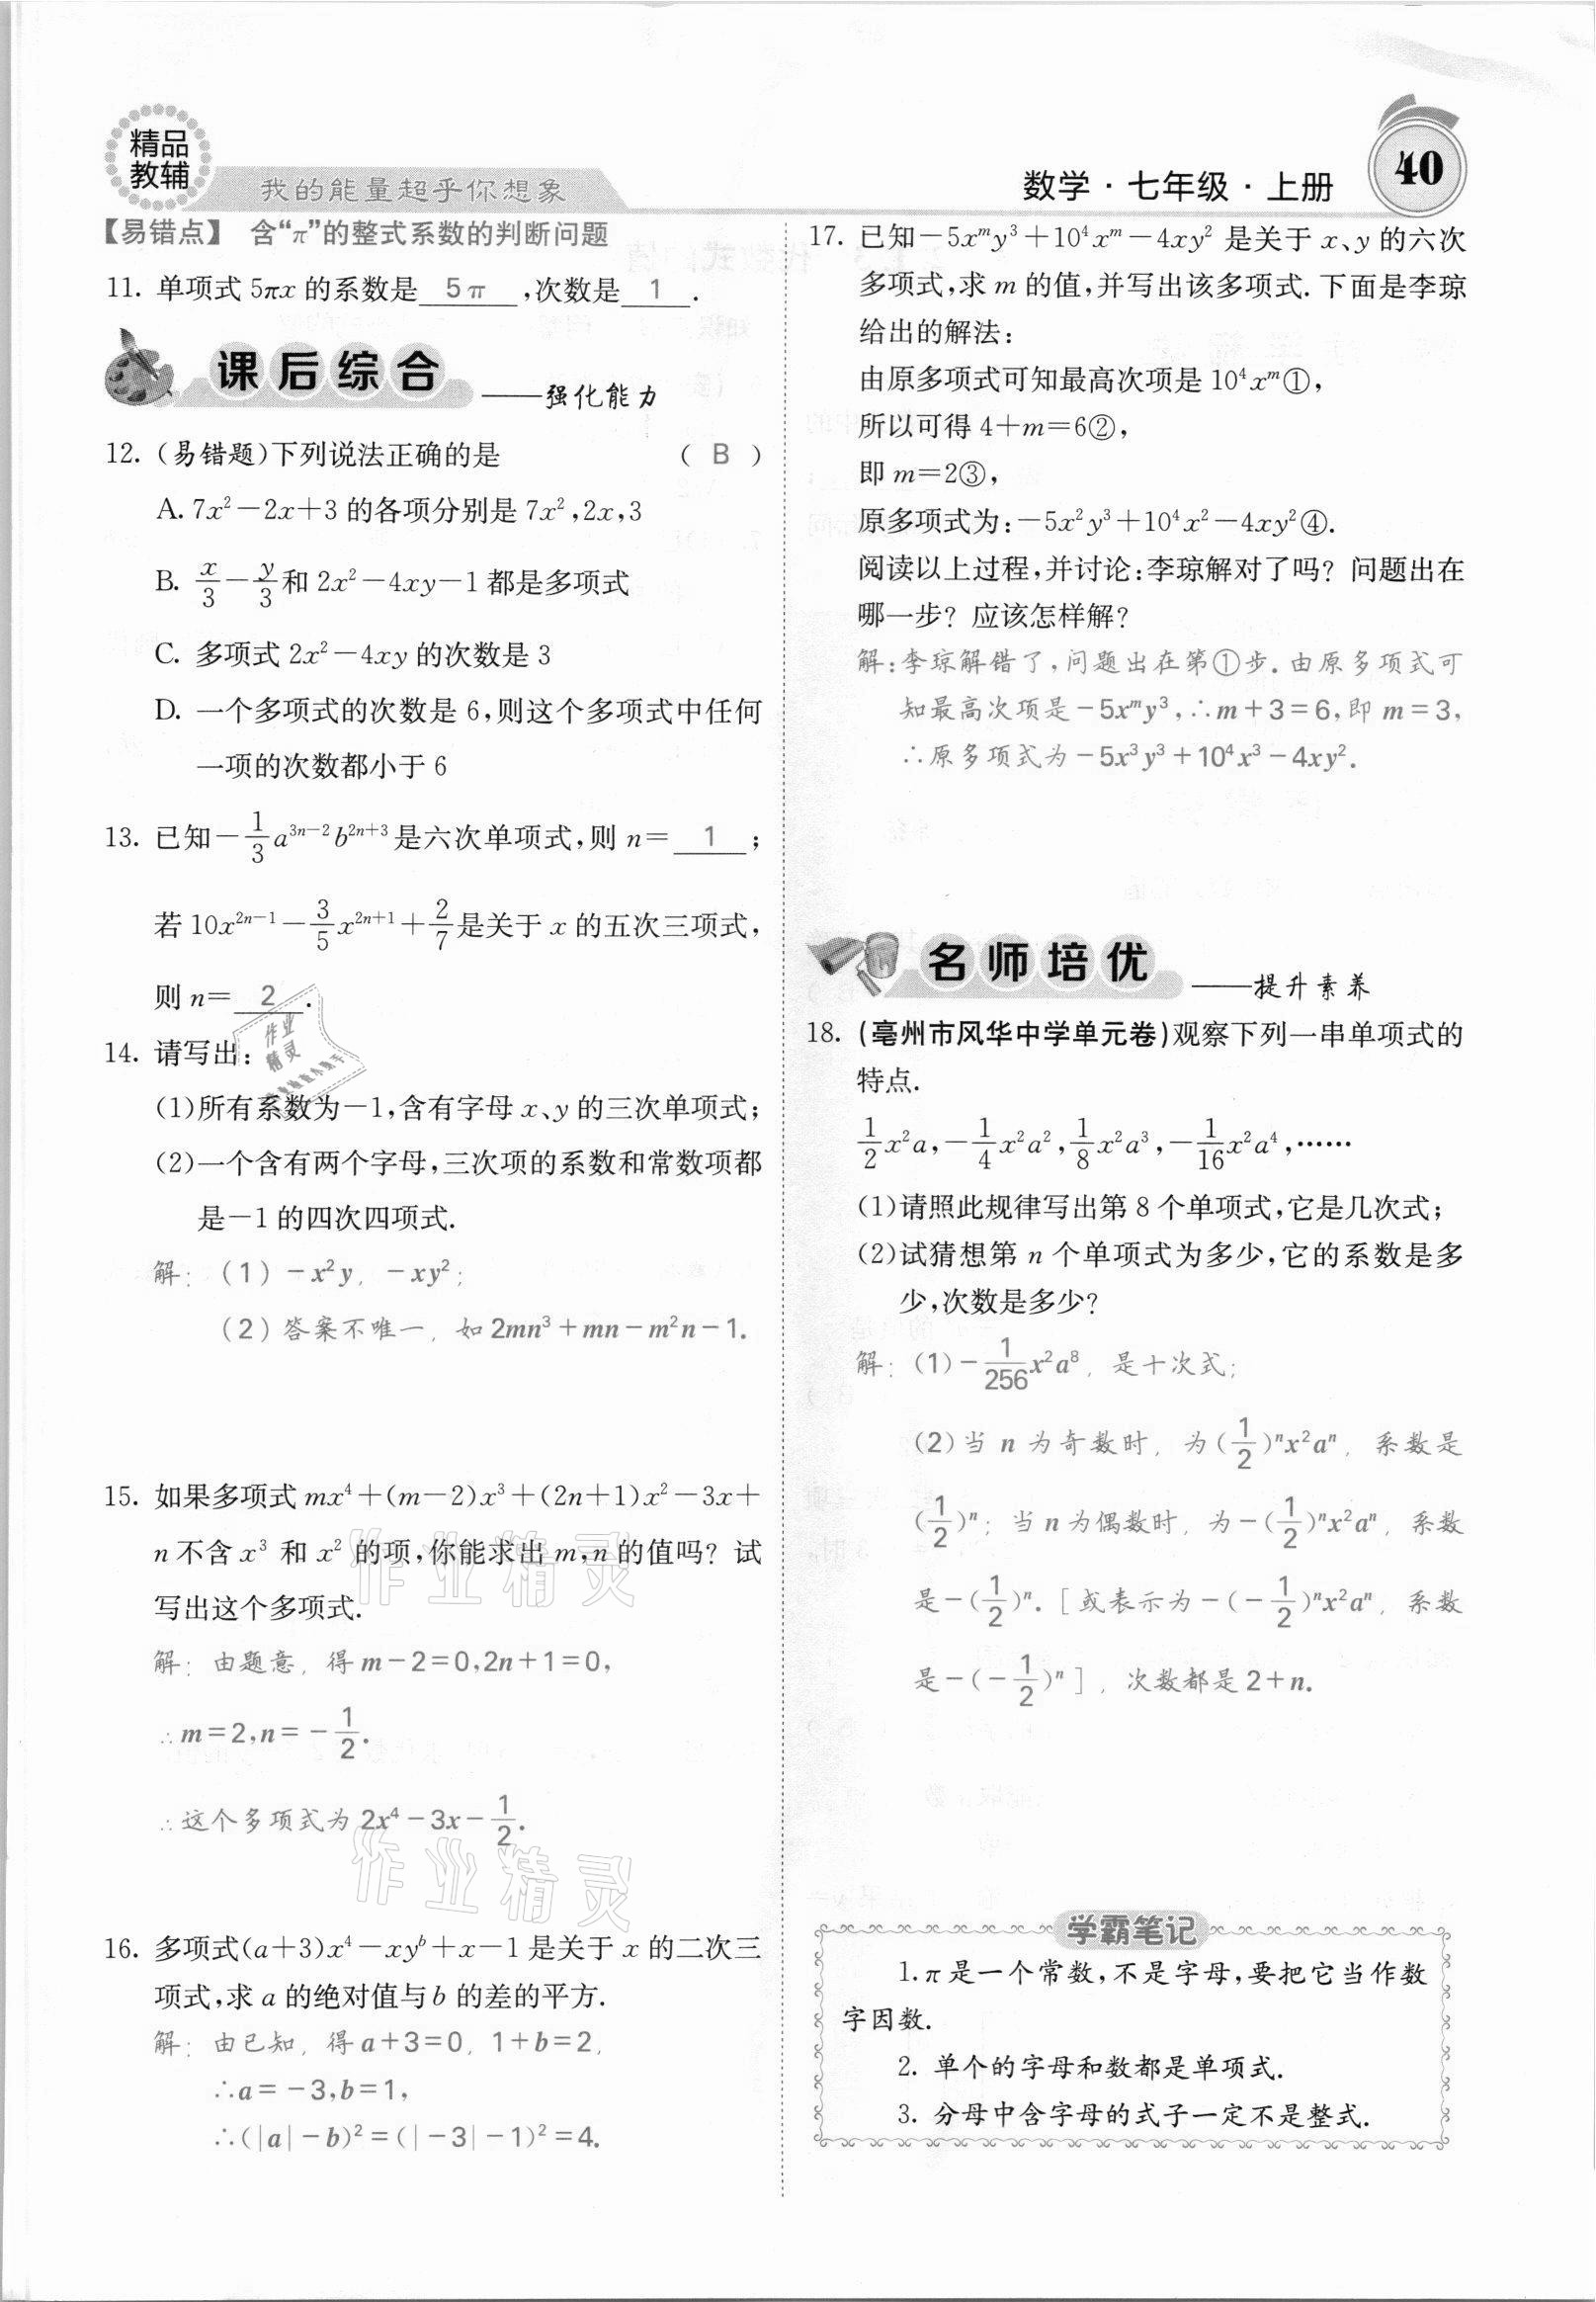 精品
教辅
我的能量超乎你想象
数学·七年级·上册
40
【易错点】 含“π”的整式系数的判断问题
11. 单项式 5πx 的系数是 5π ,次数是 1 .
课后综合 ——强化能力
12. (易错题)下列说法正确的是 ( B )
A. 7x²－2x＋3 的各项分别是 7x²,2x,3
B. x/3－y/3和 2x²－4xy－1 都是多项式
C. 多项式 2x²－4xy 的次数是 3
D. 一个多项式的次数是 6,则这个多项式中任何
一项的次数都小于 6
13. 已知－1/3 a^{3n－2}b^{2n＋3}是六次单项式,则 n＝ 1 ;
若 10x^{2n－1}－3/5 x^{2n＋1}＋2/7是关于 x 的五次三项式,
则 n＝ 2 .
14. 请写出:
(1)所有系数为－1,含有字母 x、y 的三次单项式;
(2)一个含有两个字母,三次项的系数和常数项都
是－1 的四次四项式.
解: (1)－x²y, －xy²;
(2)答案不唯一, 如 2mn³＋mn－m²n－1.
15. 如果多项式 mx⁴＋(m－2)x³＋(2n＋1)x²－3x＋
n 不含 x³ 和 x² 的项,你能求出 m,n 的值吗? 试
写出这个多项式.
解: 由题意, 得 m－2＝0,2n＋1＝0,
∴m＝2,n＝－1/2.
∴这个多项式为 2x⁴－3x－1/2.
16. 多项式(a＋3)x⁴－xy^b＋x－1 是关于 x 的二次三
项式,求 a 的绝对值与 b 的差的平方.
解: 由已知, 得 a＋3＝0, 1＋b＝2,
∴a＝－3,b＝1,
∴(|a|－b)²＝(|－3|－1)²＝4.
17. 已知－5x^m y³＋10⁴x^m－4xy² 是关于 x、y 的六次
多项式,求 m 的值,并写出该多项式. 下面是李琼
给出的解法:
由原多项式可知最高次项是 10⁴x^m①,
所以可得 4＋m＝6②,
即 m＝2③,
原多项式为:－5x²y³＋10⁴x²－4xy²④.
阅读以上过程,并讨论:李琼解对了吗? 问题出在
哪一步? 应该怎样解?
解:李琼解错了,问题出在第①步. 由原多项式可
知最高次项是－5x^m y³,∴m＋3＝6,即 m＝3,
∴原多项式为－5x³y³＋10⁴x³－4xy².
名师培优 ——提升素养
18. (亳州市风华中学单元卷)观察下列一串单项式的
特点.
1/2 x²a,－1/4 x²a²,1/8 x²a³,－1/16 x²a⁴,……
(1)请照此规律写出第 8 个单项式,它是几次式;
(2)试猜想第 n 个单项式为多少,它的系数是多
少,次数是多少?
解: (1)－1/256 x²a⁸, 是十次式;
(2)当 n 为奇数时, 为(1/2)ⁿx²aⁿ, 系数是
(1/2)ⁿ; 当 n 为偶数时, 为－(1/2)ⁿx²aⁿ, 系数
是－(1/2)ⁿ. [或表示为－(－1/2)ⁿx²aⁿ, 系数
是－(－1/2)ⁿ], 次数都是 2＋n.
学霸笔记
1. π 是一个常数,不是字母,要把它当作数
字因数.
2. 单个的字母和数都是单项式.
3. 分母中含字母的式子一定不是整式.
作业
精灵
作业精灵
作业精灵